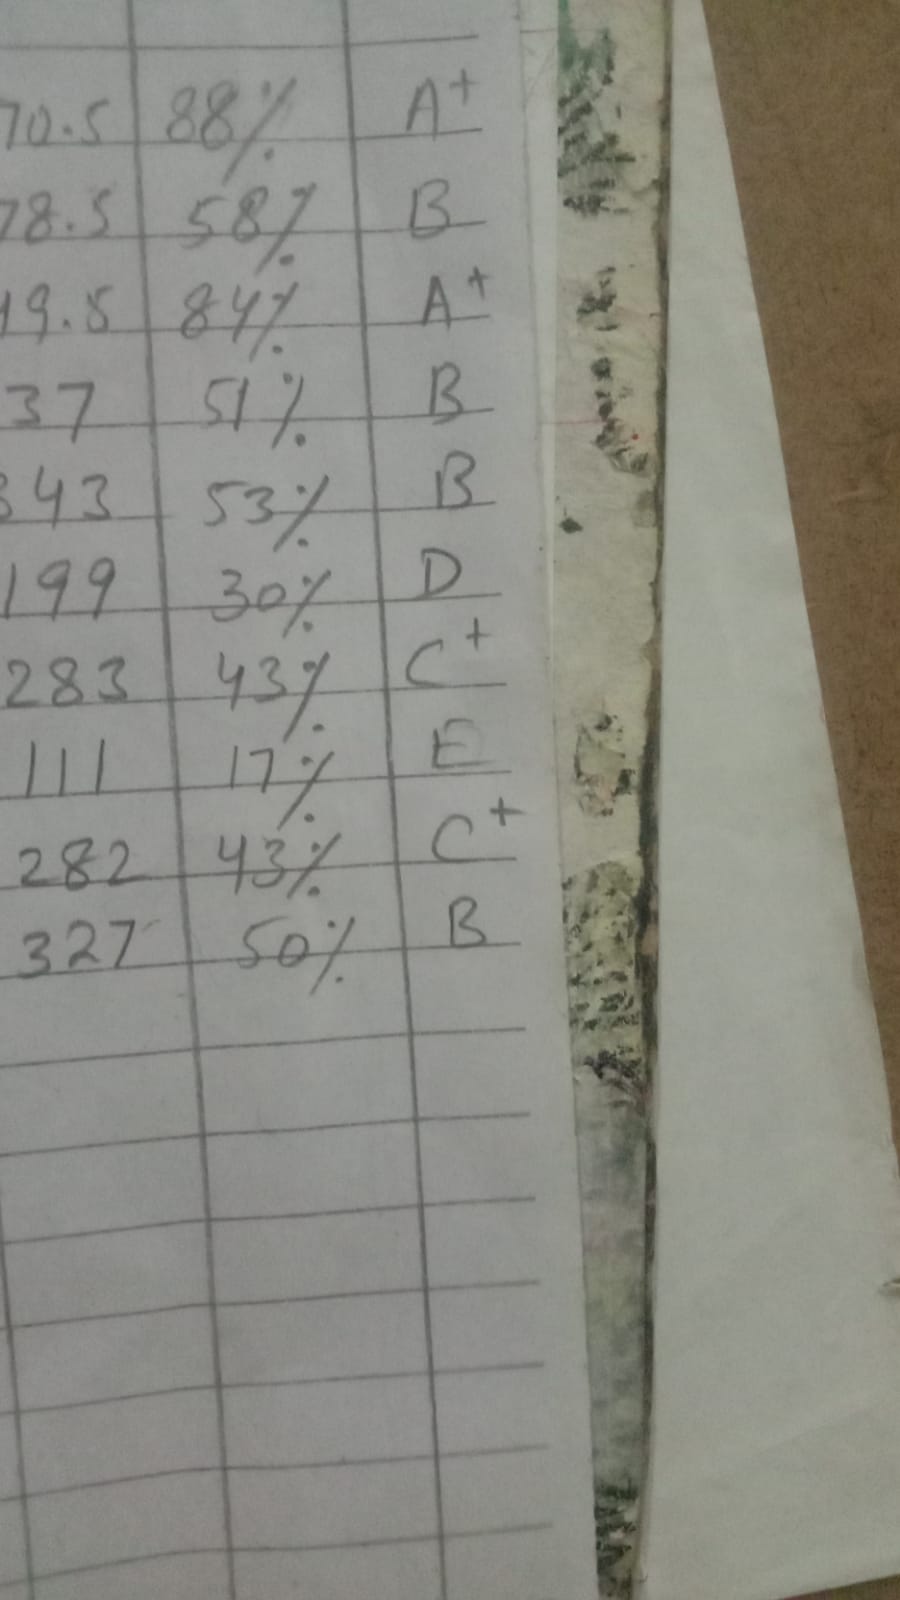 70.5 88% A+
78.5 58% B
19.5 84% A+
37 51% B
343 53% B
199 30% D
283 43% C+
111 17% E
282 43% C+
327 50% B